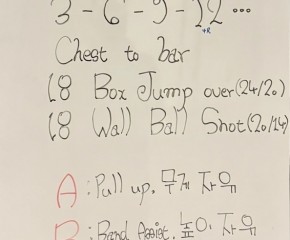 3 - 6 - 9 - 12 ...
+R
Chest to bar
18 Box Jump over(24/20)
18 Wall Ball Shot(20/14)
A : Pull up, 무게 자유
B : Band Assist, 높이 자유